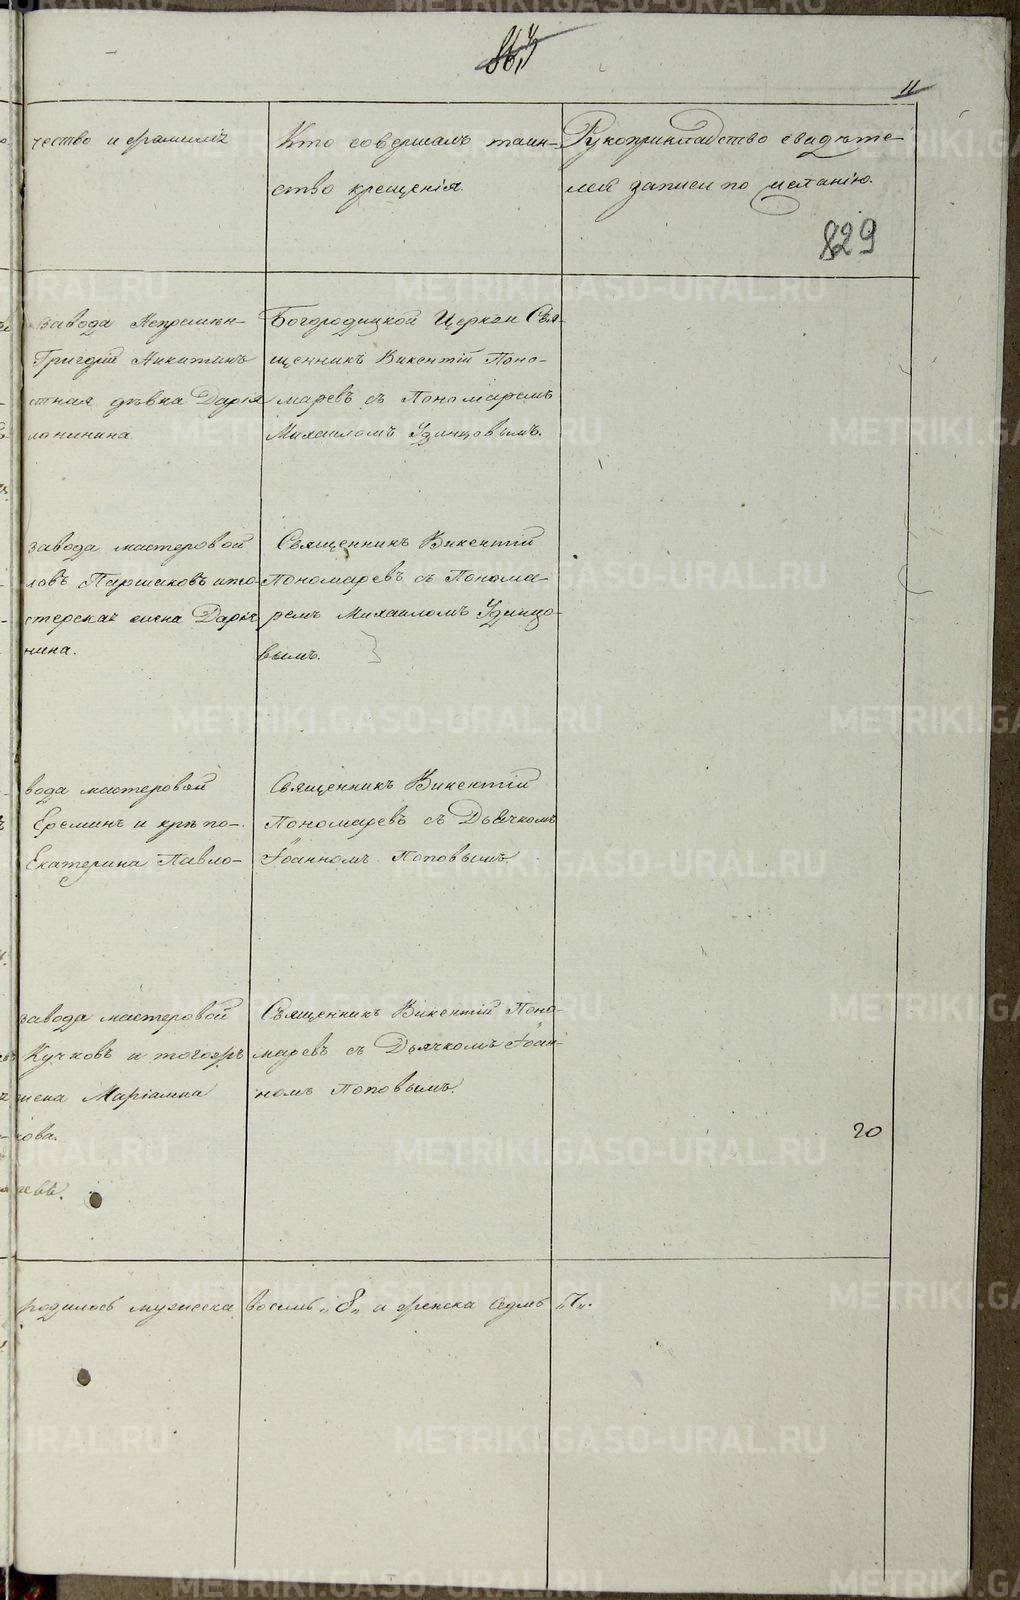 11
чество и фамилія
Кто совершалъ таин-
ство крещенія.
Рукоприкладство свидѣте-
лей записи по желанію.
829
завода Непремѣн-
Григорій Никитинъ
стная дѣвка Дарія
лонинина
Богородицкой Церкви Свя-
щенникъ Викентій Поно-
маревъ съ Пономаремъ
Михаиломъ Удинцовымъ.
завода мастеровой
ловъ Паршаковъ и то-
стерская жена Дарія
нина.
Священникъ Викентій
Пономаревъ съ Понома-
ремъ Михаиломъ Удинцо-
вымъ.
вода мастеровой
Ереминъ и крѣпо-
Екатерина Павло-
Священникъ Викентій
Пономаревъ съ Дьячкомъ
Іоанномъ Поповымъ
завода мастеровой
Кучковъ и тогожъ
жена Маріамна
кова.
Священникъ Викентій Поно-
маревъ съ Дьячкомъ Іоан-
номъ Поповымъ.
20
родилось мужеска восемь „8„ а женска седмь „7„.
METRIKI.GASO-URAL.RU